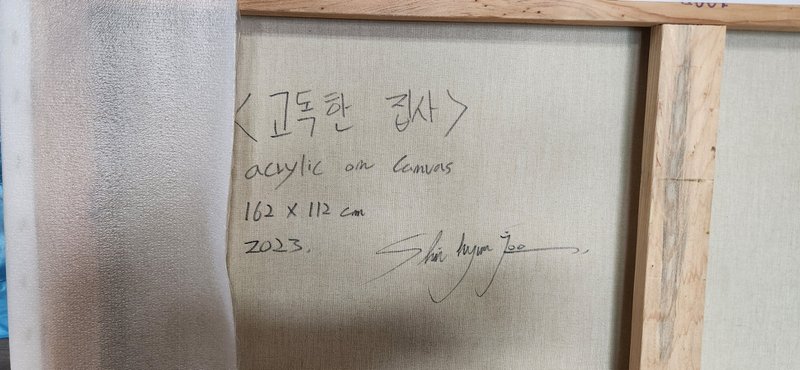 <고독한 집사>
acrylic on canvas
162 x 112 cm
2023.
Shin hyun joo